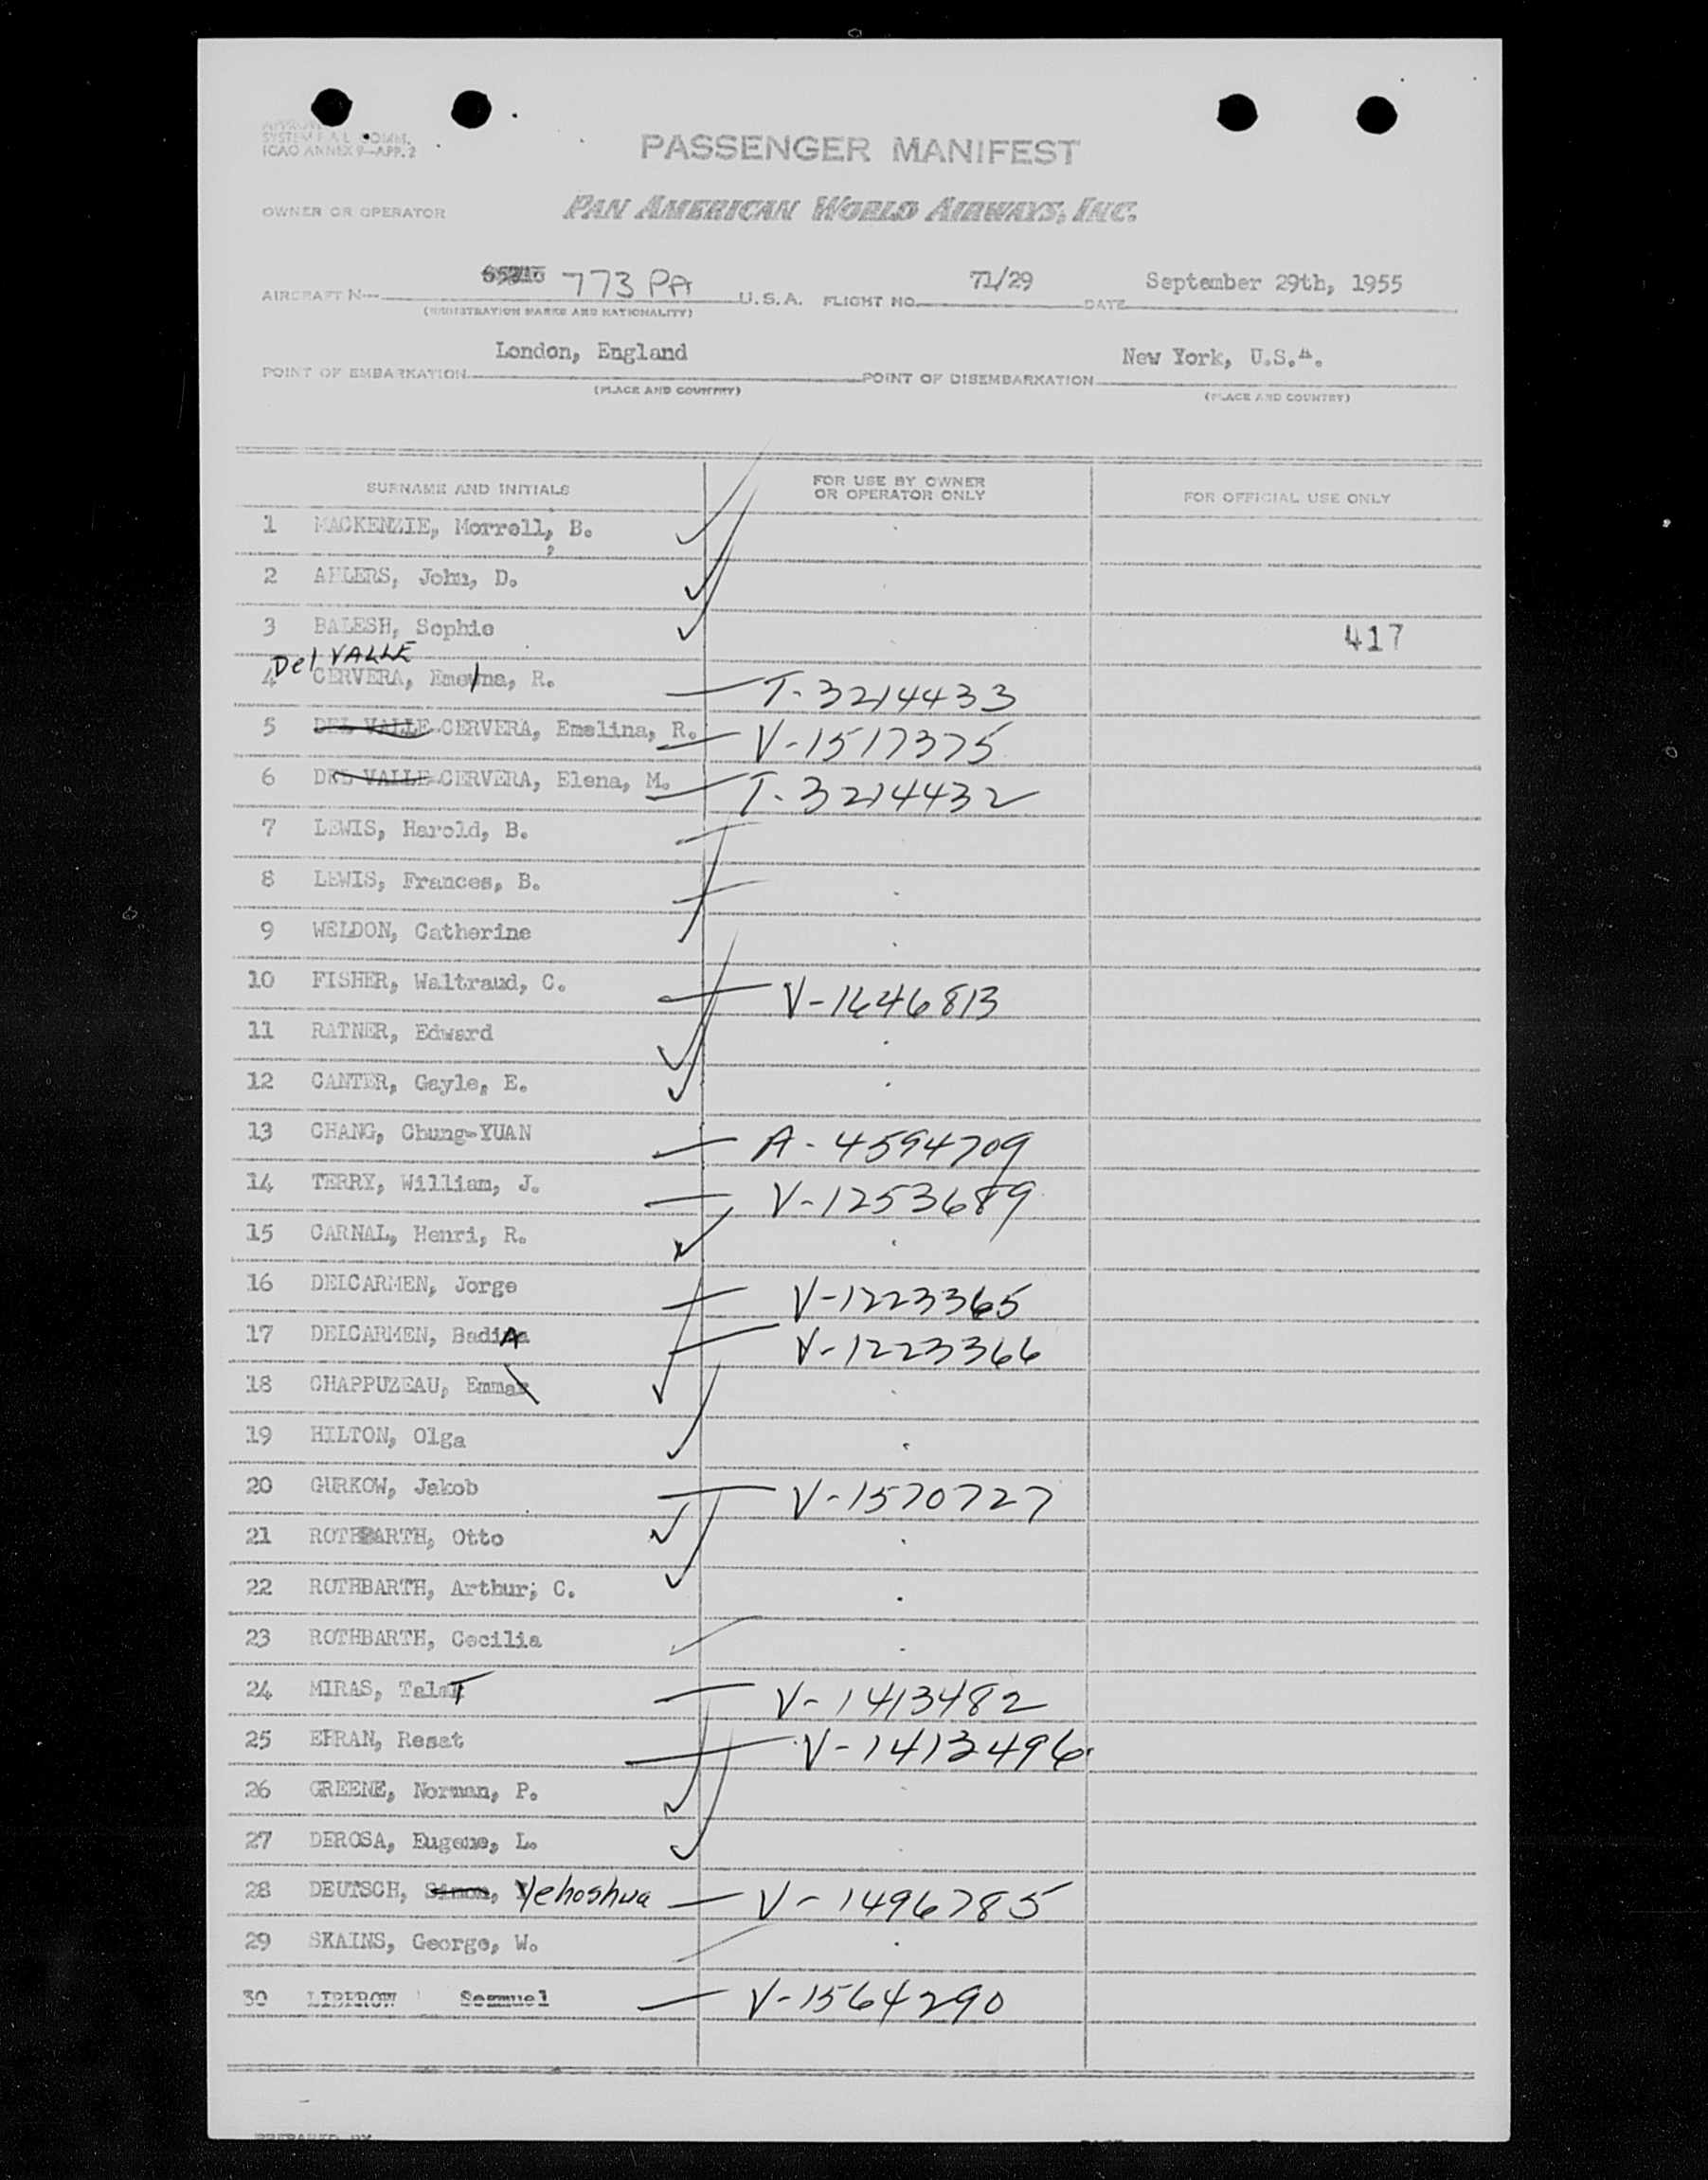 ICAO ANNEX 9-APP. 2
PASSENGER MANIFEST
OWNER OR OPERATOR PAN AMERICAN WORLD AIRWAYS, INC.
AIRCRAFT N- 773 PA U.S.A. FLIGHT NO. 71/29 DATE September 29th, 1955
(REGISTRATION MARKS AND NATIONALITY)
POINT OF EMBARKATION London, England POINT OF DISEMBARKATION New York, U.S.A.
(PLACE AND COUNTRY) (PLACE AND COUNTRY)
SURNAME AND INITIALS FOR USE BY OWNER OR OPERATOR ONLY FOR OFFICIAL USE ONLY
1 MACKENZIE, Morrell, B.
2 AHLERS, John, D.
3 BALESH, Sophie 417
Del VALLE
4 CERVERA, R. T-3214433
5 DEL VALLE CERVERA, Emelina, R. V-1517375
6 DEL VALLE CERVERA, Elena, M. T-3214432
7 LEWIS, Harold, B.
8 LEWIS, Frances, B.
9 WELDON, Catherine
10 FISHER, Waltraud, C. V-1646813
11 RATNER, Edward
12 CANTER, Gayle, E.
13 CHANG, Chung-YUAN A-4594709
14 TERRY, William, J. V-1253689
15 CARNAL, Henri, R.
16 DELCARMEN, Jorge V-1223365
17 DELCARMEN, V-1223366
18 CHAPPUZEAU, Emma
19 HILTON, Olga
20 GURKOW, Jakob V-1570727
21 ROTHBARTH, Otto
22 ROTHBARTH, Arthur; C.
23 ROTHBARTH, Cecilia
24 MIRAS, Talat V-1413482
25 Resat V-1413496
26 GREENE, Norman, P.
27 DEROSA, Eugene, L.
28 DEUTSCH, Simon, Yehoshua V-1496785
29 SKAINS, George, W.
30 V-1564290
PREPARED BY